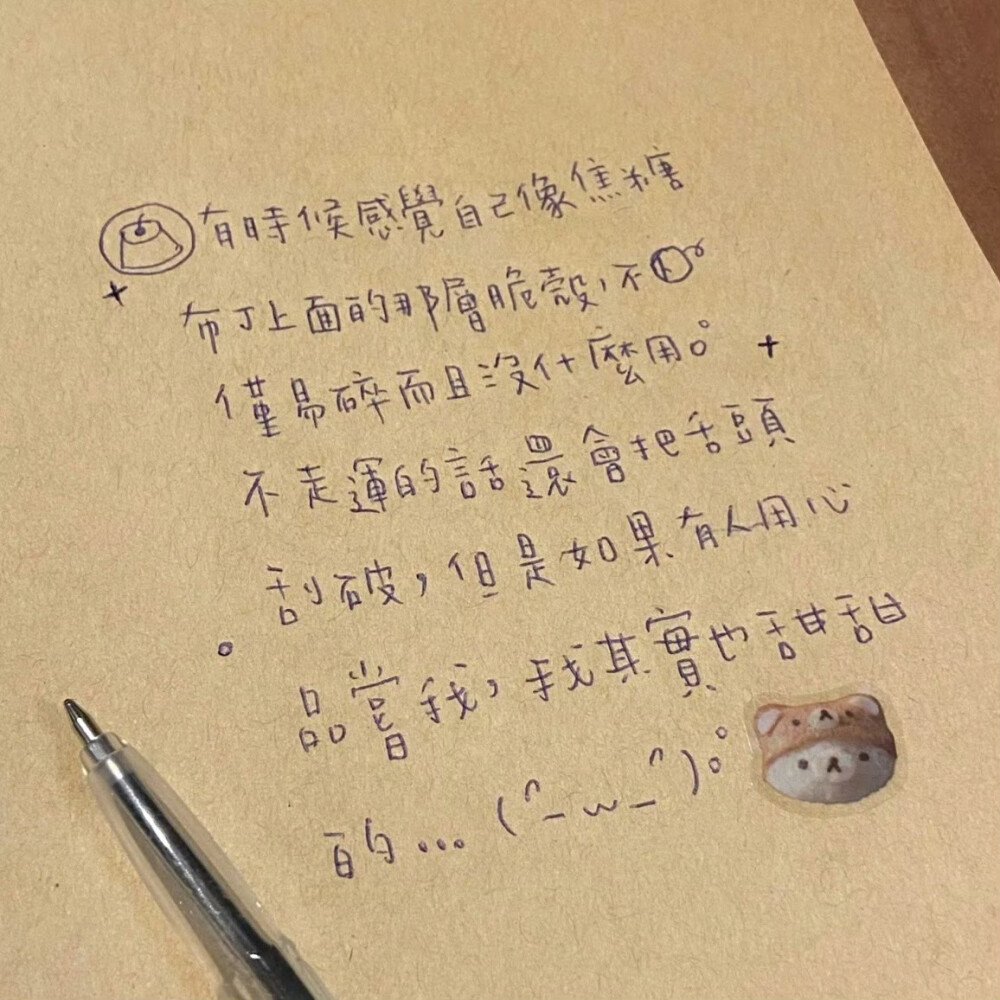 有時候感覺自己像焦糖
布丁上面的那層脆殼,不
僅易碎而且沒什麼用。
不走運的話還會把舌頭
刮破,但是如果有人用心
品嘗我,我其實也甜甜
的...(^_w_^)。